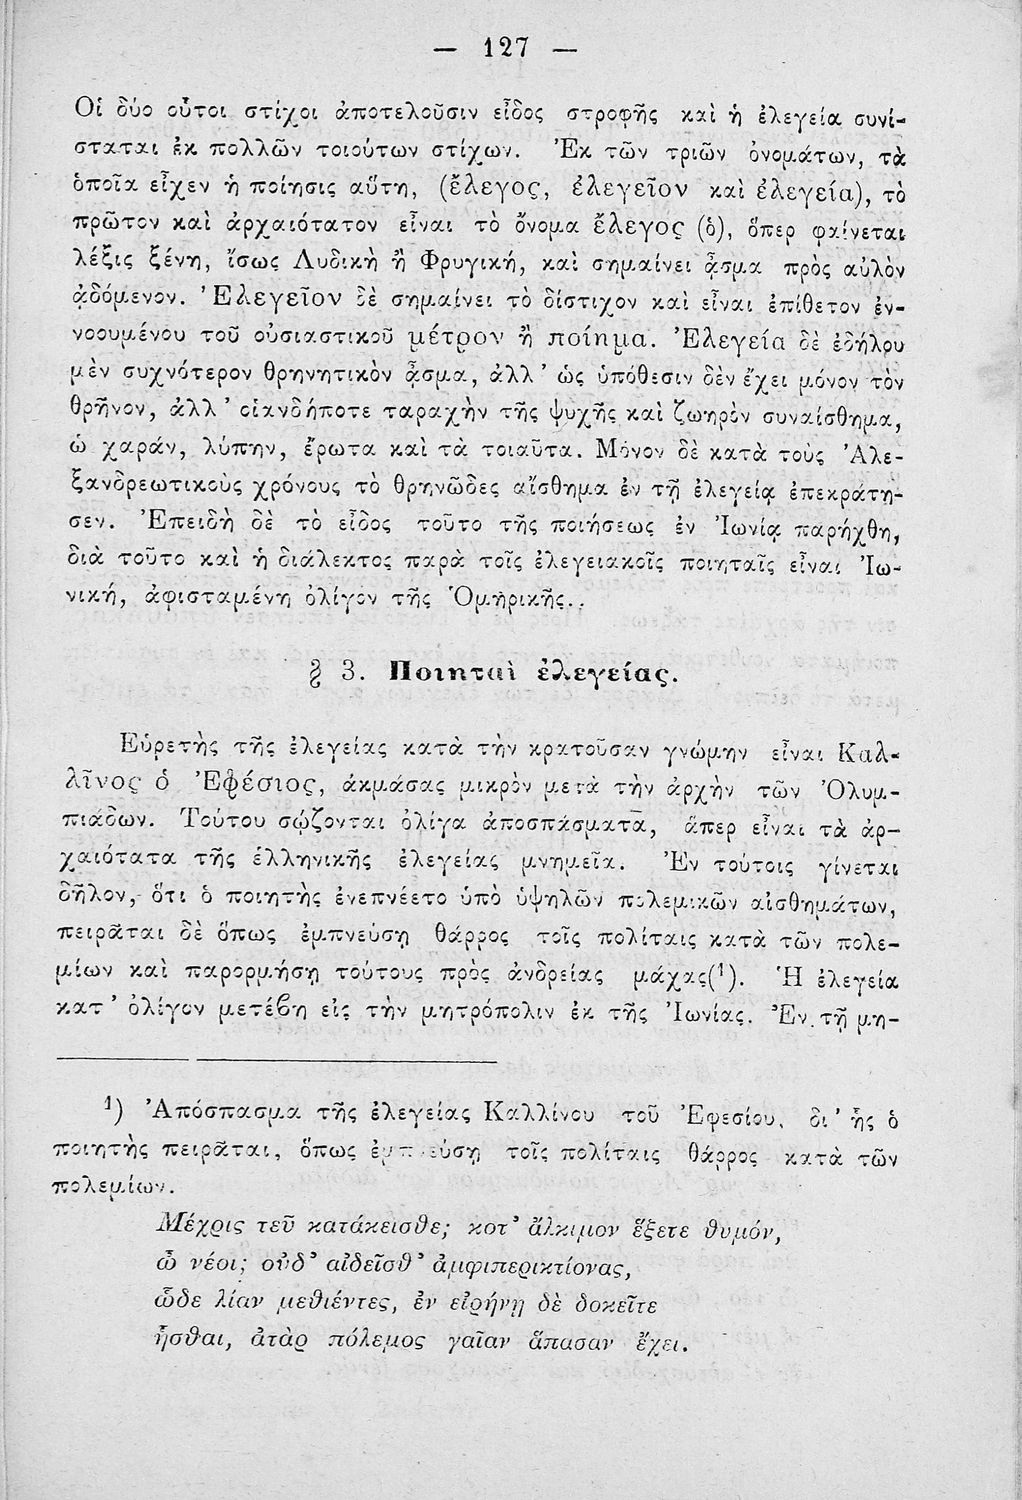 — 127 —
Οἱ δύο οὗτοι στίχοι ἀποτελοῦσιν εἶδος στροφῆς καὶ ἡ ἐλεγεία συνί-
σταται ἐκ πολλῶν τοιούτων στίχων. Ἐκ τῶν τριῶν ὀνομάτων, τὰ
ὁποῖα εἶχεν ἡ ποίησις αὕτη, (ἔλεγος, ἐλεγεῖον καὶ ἐλεγεία), τὸ
πρῶτον καὶ ἀρχαιότατον εἶναι τὸ ὄνομα ἔλεγος (ὁ), ὅπερ φαίνεται
λέξις ξένη, ἴσως Λυδικὴ ἢ Φρυγική, καὶ σημαίνει ᾆσμα πρὸς αὐλὸν
ᾀδόμενον. Ἐλεγεῖον δὲ σημαίνει τὸ δίστιχον καὶ εἶναι ἐπίθετον ἐν-
νοουμένου τοῦ οὐσιαστικοῦ μέτρον ἢ ποίημα. Ἐλεγεία δὲ ἐδήλου
μὲν συχνότερον θρηνητικὸν ᾆσμα, ἀλλ’ ὡς ὑπόθεσιν δὲν ἔχει μόνον τὸν
θρῆνον, ἀλλ’ οἱανδήποτε ταραχὴν τῆς ψυχῆς καὶ ζωηρὸν συναίσθημα,
ὡ χαράν, λύπην, ἔρωτα καὶ τὰ τοιαῦτα. Μόνον δὲ κατὰ τοὺς Ἀλε-
ξανδρεωτικοὺς χρόνους τὸ θρηνῶδες αἴσθημα ἐν τῇ ἐλεγείᾳ ἐπεκράτη-
σεν. Ἐπειδὴ δὲ τὸ εἶδος τοῦτο τῆς ποιήσεως ἐν Ἰωνίᾳ παρήχθη,
διὰ τοῦτο καὶ ἡ διάλεκτος παρὰ τοῖς ἐλεγειακοῖς ποιηταῖς εἶναι Ἰω-
νική, ἀφισταμένη ὀλίγον τῆς Ὁμηρικῆς..
§ 3. Ποιηταὶ ἐλεγείας.
Εὑρετὴς τῆς ἐλεγείας κατὰ τὴν κρατοῦσαν γνώμην εἶναι Καλ-
λῖνος ὁ Ἐφέσιος, ἀκμάσας μικρὸν μετὰ τὴν ἀρχὴν τῶν Ὀλυμ-
πιάδων. Τούτου σῴζονται ὀλίγα ἀποσπάσματα, ἅπερ εἶναι τὰ ἀρ-
χαιότατα τῆς ἑλληνικῆς ἐλεγείας μνημεῖα. Ἐν τούτοις γίνεται
δῆλον, ὅτι ὁ ποιητὴς ἐνεπνέετο ὑπὸ ὑψηλῶν πολεμικῶν αἰσθημάτων,
πειρᾶται δὲ ὅπως ἐμπνεύσῃ θάρρος τοῖς πολίταις κατὰ τῶν πολε-
μίων καὶ παρορμήσῃ τούτους πρὸς ἀνδρείας μάχας(¹). Ἡ ἐλεγεία
κατ’ ὀλίγον μετέβη εἰς τὴν μητρόπολιν ἐκ τῆς Ἰωνίας. Ἐν τῇ μη-
¹) Ἀπόσπασμα τῆς ἐλεγείας Καλλίνου τοῦ Ἐφεσίου, δι’ ἧς ὁ
ποιητὴς πειρᾶται, ὅπως ἐμπνεύσῃ τοῖς πολίταις θάρρος κατὰ τῶν
πολεμίων.
Μέχρις τεῦ κατάκεισθε; κοτ’ ἄλκιμον ἕξετε θυμόν,
ὦ νέοι; οὐδ’ αἰδεῖσθ’ ἀμφιπερικτίονας,
ὧδε λίαν μεθιέντες, ἐν εἰρήνῃ δὲ δοκεῖτε
ἧσθαι, ἀτὰρ πόλεμος γαῖαν ἅπασαν ἔχει.